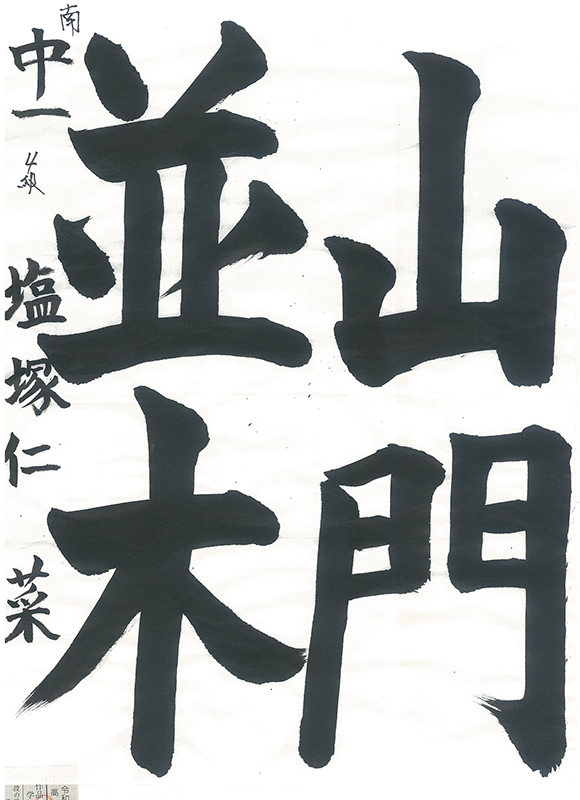 山門
並木
南
中一 4級 塩塚仁菜